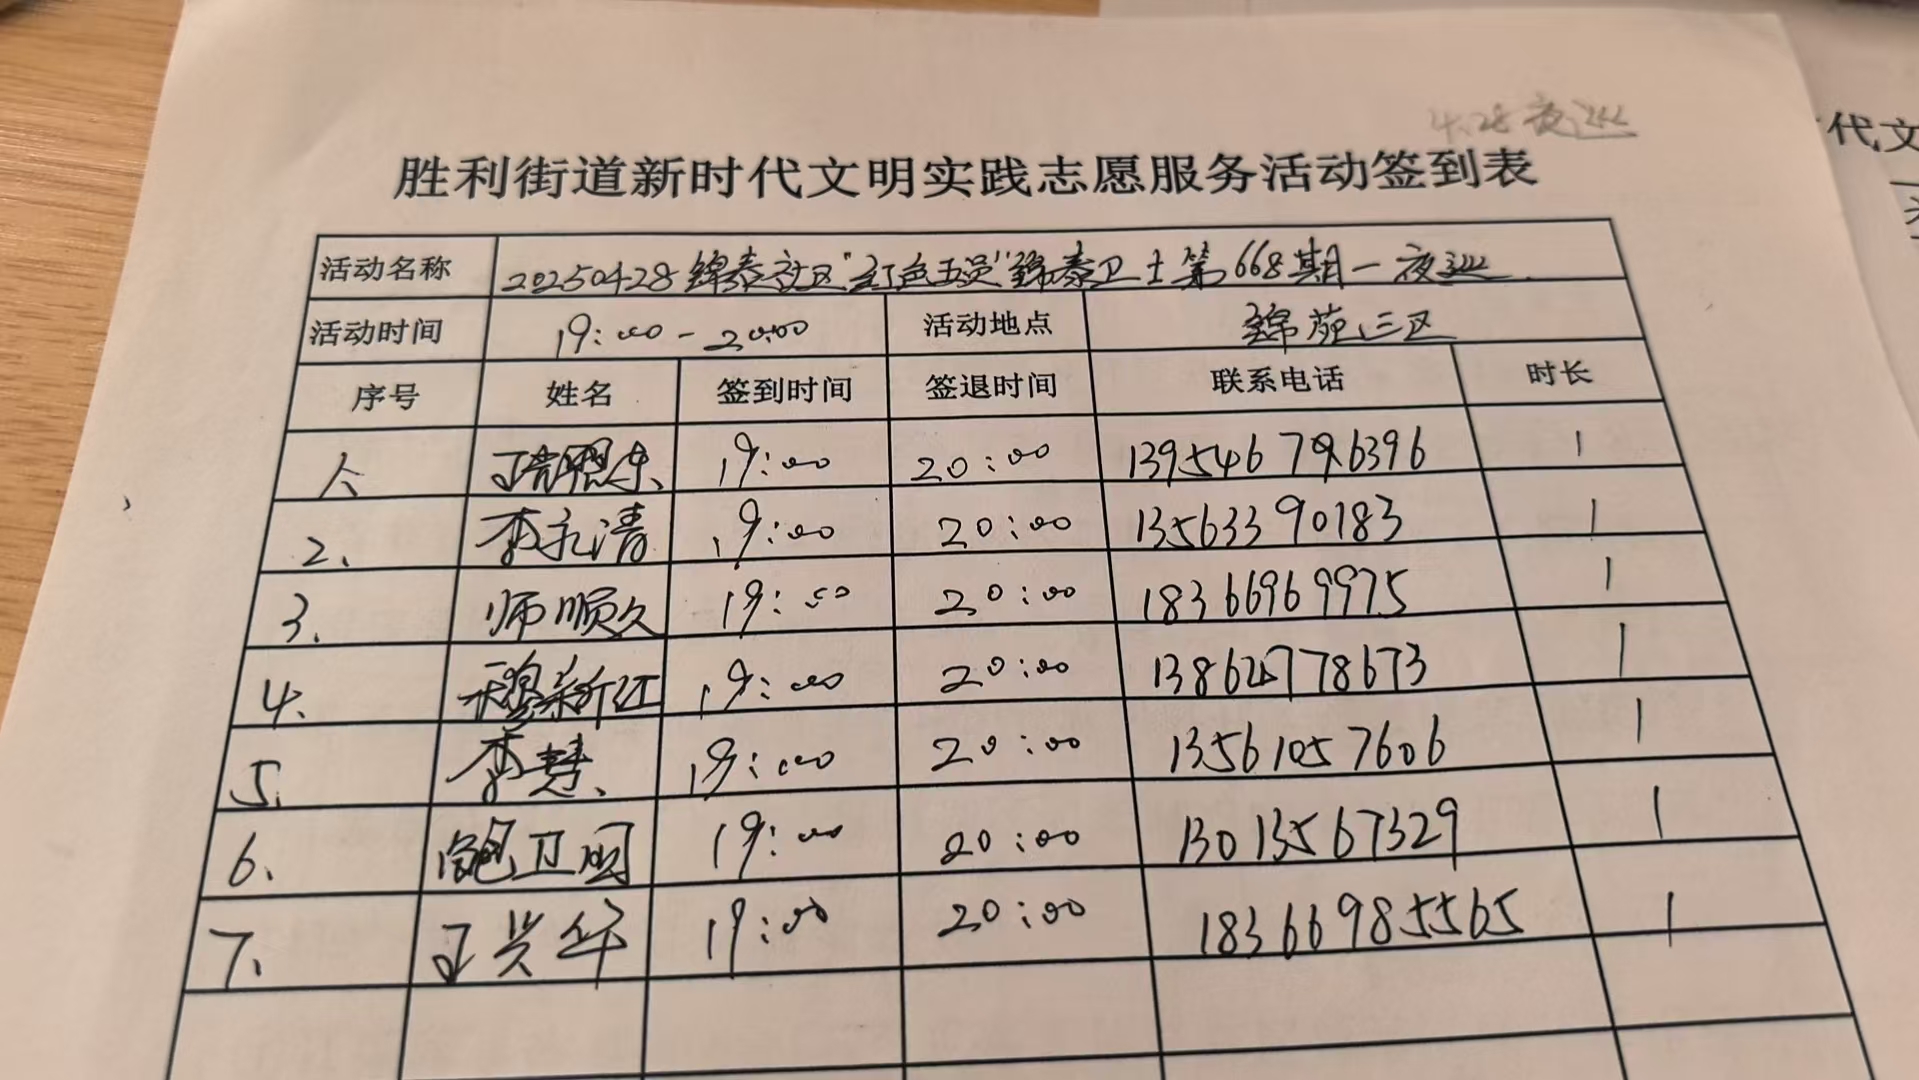 4.28夜巡
胜利街道新时代文明实践志愿服务活动签到表
活动名称 20250428锦泰社区"红色五员"锦泰卫士第668期一夜巡
活动时间 19:00-20:00 活动地点 锦苑三区
序号 姓名 签到时间 签退时间 联系电话 时长
19:00 20:00 1
2、 李永清 19:00 20:00 13563390183 1
3、 师顺久 19:00 20:00 18366969975 1
4、 穆新红 19:00 20:00 1
5、 李慧 19:00 20:00 13561057606 1
6、 鲍卫国 19:00 20:00 13013567329 1
7、 王兴华 19:00 20:00 18366985565 1
代文